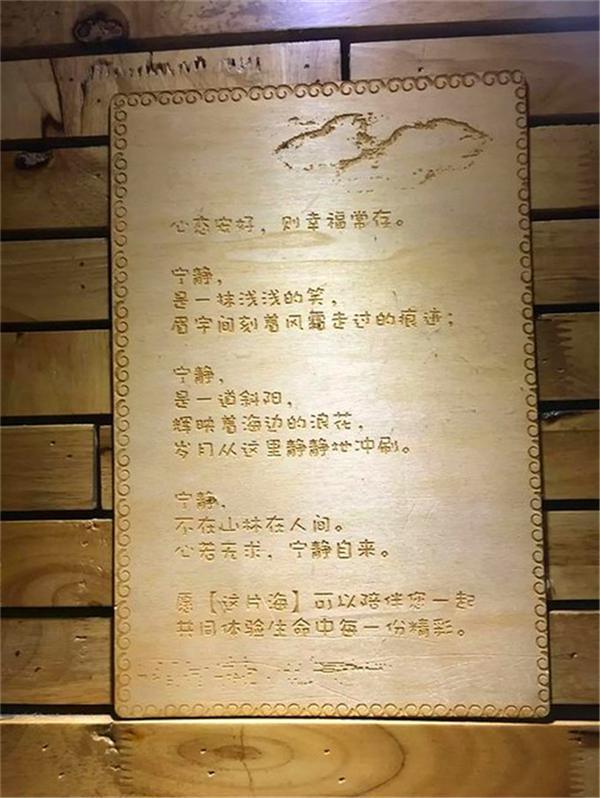 心态安好，则幸福常存。
宁静，
是一抹浅浅的笑，
眉宇间刻着风霜走过的痕迹；
宁静，
是一道斜阳，
辉映着海边的浪花，
岁月从这里静静地冲刷。
宁静，
不在山林在人间。
心若无求，宁静自来。
愿【这片海】可以陪伴您一起
共同体验生命中每一份精彩。